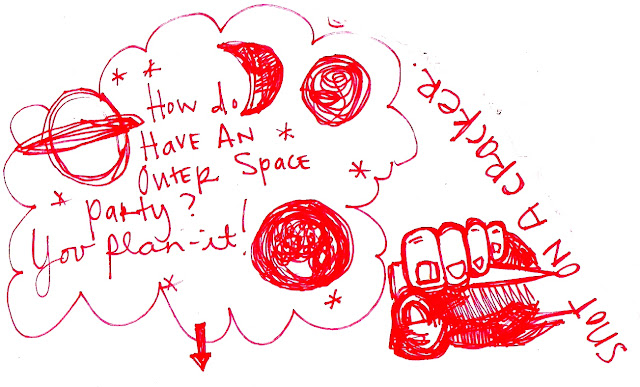 How do
HAVE AN
OUTER SPACE
party?
You plan-it!
SNOT ON A CRACKER.